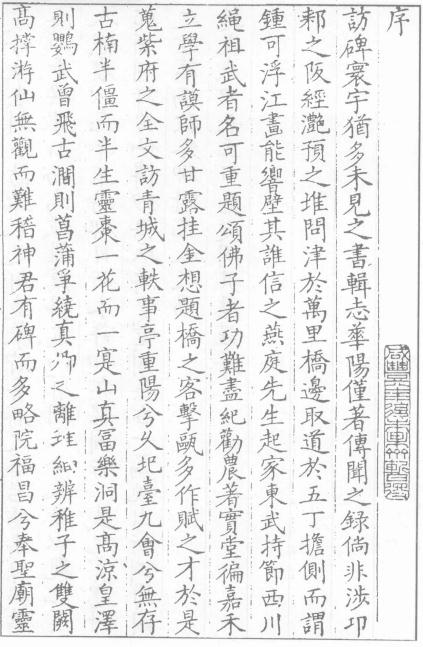 序
訪碑寰宇猶多未見之書輯志華陽僅著傳聞之錄倘非涉卭
郲之阪經灩預之堆問津於萬里橋邊取道於五丁擔側而謂
鍾可浮江畫能響壁其誰信之燕庭先生起家東武持節西川
繩祖武者名可重題頌佛子者功難盡紀勸農著實堂徧嘉禾
立學有謨師多甘露挂金想題橋之客擊甌多作賦之才於是
蒐紫府之全文訪青城之軼事亭重陽兮久圯臺九會兮無存
古楠半僵而半生靈棗一花而一寔山真富樂洞是高涼皇澤
則鸚武曾飛古澗則菖蒲爭繞真之離辨稚子之雙闕
高撐游仙無觀而難稽神君有碑而多略院福昌兮奉聖廟靈